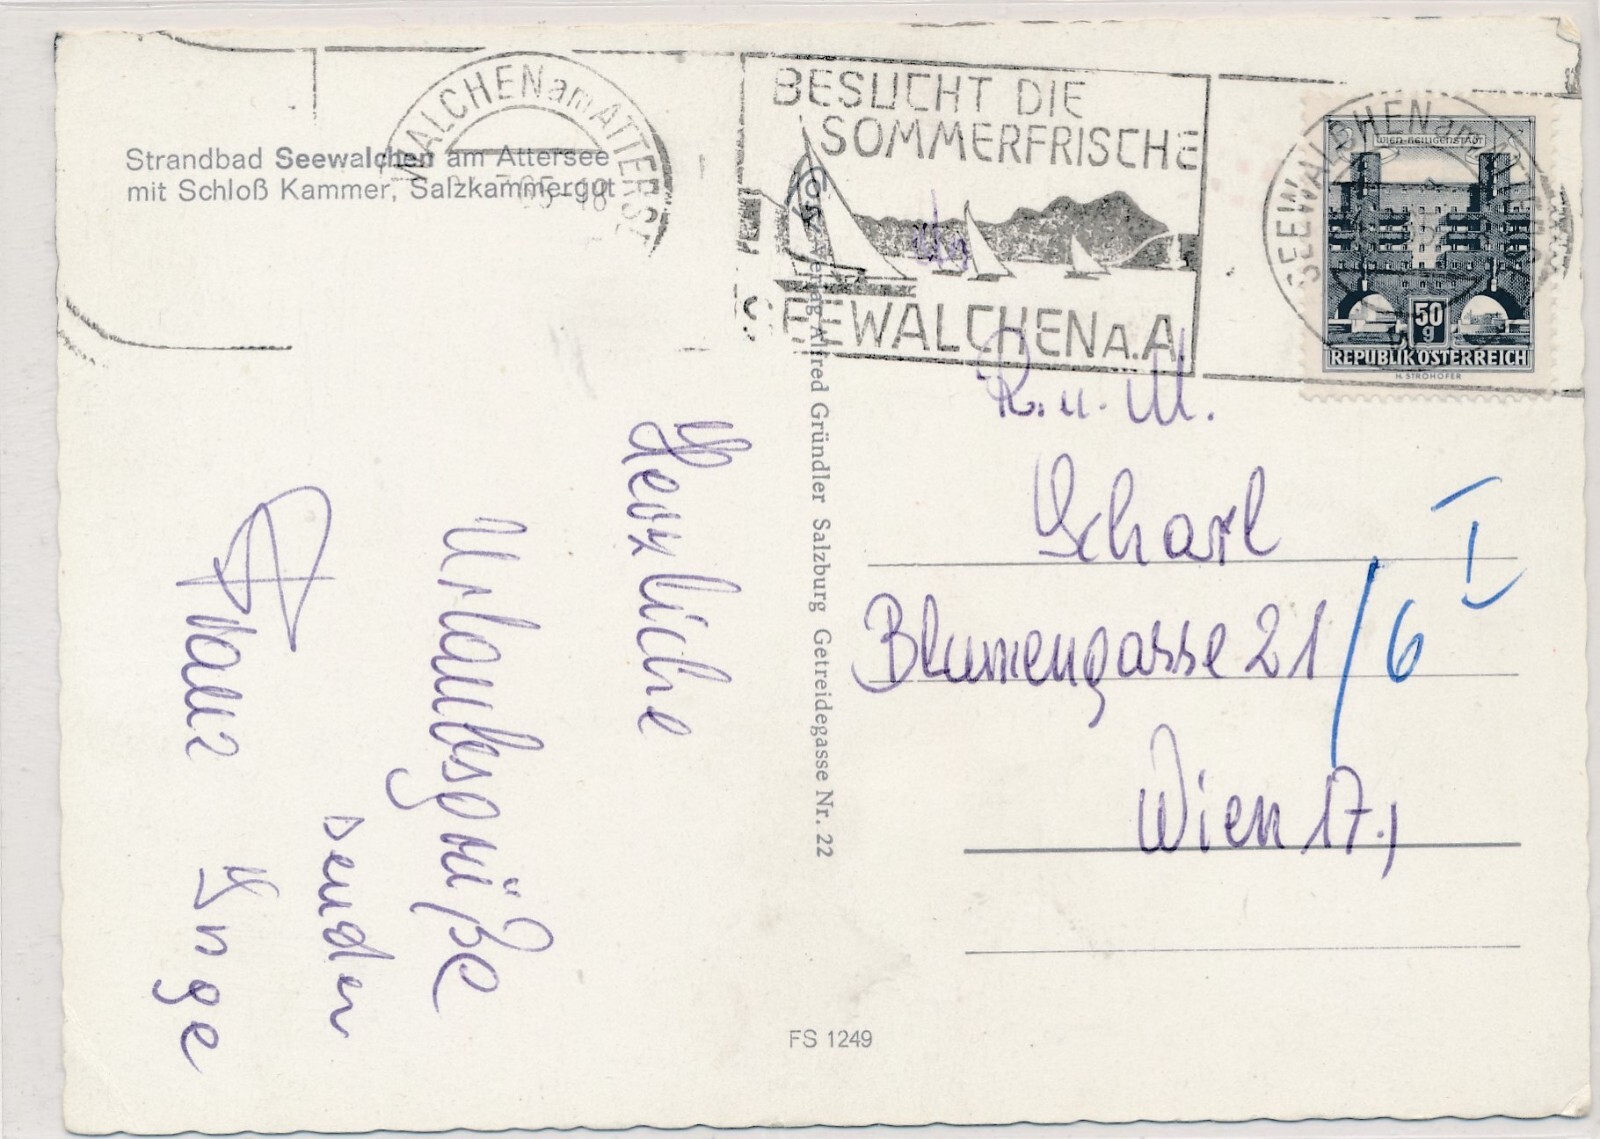 Strandbad Seewalchen am Attersee
mit Schloß Kammer, Salzkammergut
WALCHEN am ATTERSE
65-18
BESUCHT DIE
SOMMERFRISCHE
SEEWALCHEN a.A.
SEEWALCHEN am
WIEN-HEILIGENSTADT
50
g
REPUBLIK ÖSTERREICH
H. STROHOFER
Cosy-Verlag Alfred Gründler Salzburg Getreidegasse Nr. 22
Herzliche
Urlaubsgrüße
senden
Franz Inge
R. u. M.
Scharl
Blumengasse 21/6
I
Wien 17.,
FS 1249